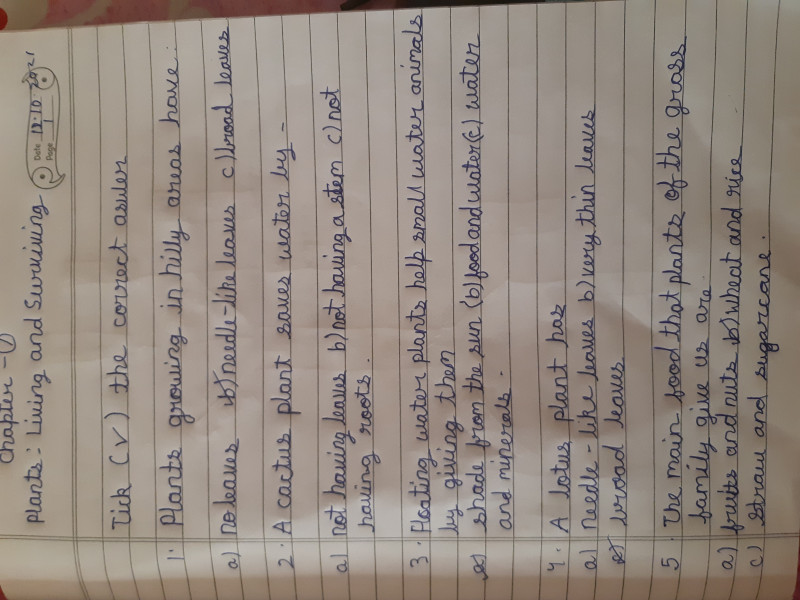 Chapter - 1
Plants - Living and Surviving
Date 12.10.2021
Page 1
Tick (√) the correct aswer
1. Plants growing in hilly areas have.
a) no leaves b) needle-like leaves c) broad leaves
2. A cactus plant saves water by -
a) not having leaves b) not having a stem c) not
having roots.
3. Floating water plants help small water animals
by giving them
a) shade from the sun (b) food and water (c) water
and minerals.
4. A lotus plant has
a) needle-like leaves b) very thin leaves
c) broad leaves
5. The main food that plants of the grass
family give us are
a) fruits and nuts b) Wheat and rice
c) straw and sugarcane.